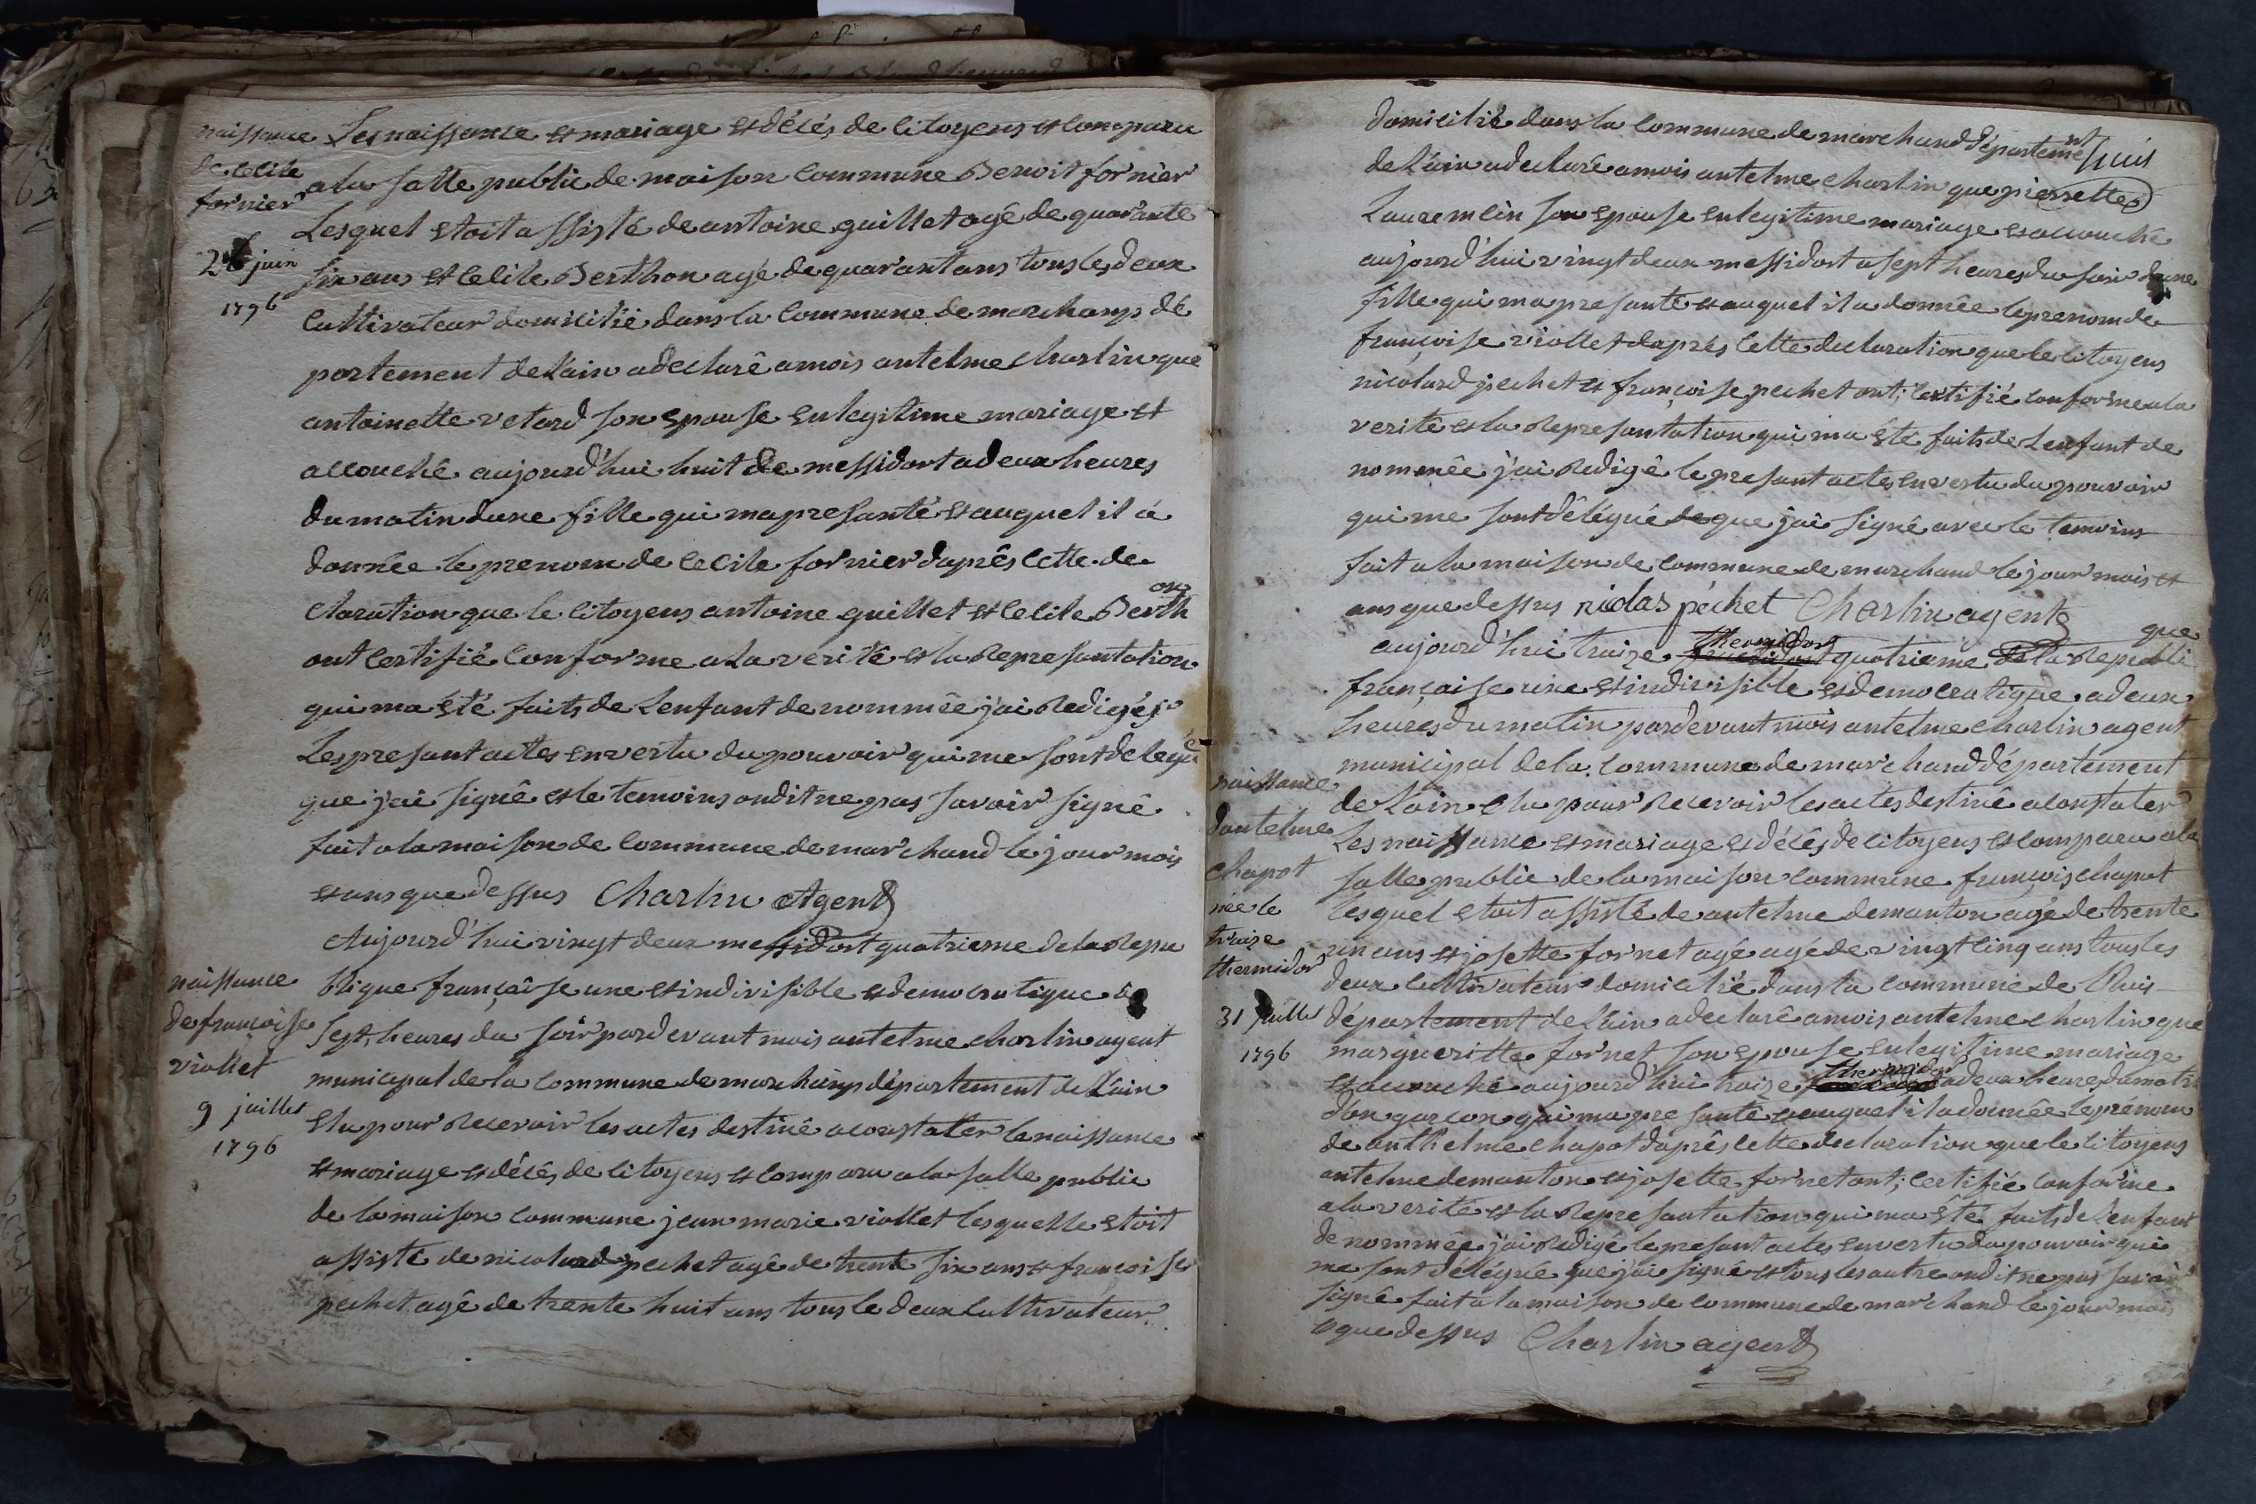 naissance
de cecile
fornier
26 juin
1796
Les naissance et mariage et décés de citoyens et comparu
a la salle public de maison commune Benoit fornier
Lesquel etoit assisté de antoine guillet agé de quarante
six ans et cecile Berthon agé de quarant ans tous les deux
cultivateur domicilié dans la commune de marchamp dé
partement de L'ain a declaré a mois antelme charlin que
antoinette vetard son epouse en legitime mariage et
accouché aujourd'hui huit de messidort a deux heures
du matin dune fille qui ma presanté et auquel il á
donnée le prenom de cecile fornier daprês cette de
claration que le citoyens antoine guillet et cecile Berth
on
ont certifié conforme a la verité et la Represantation
qui ma êté faits de L'enfant denommée j'ai Redigé
Les presant actes en vertu du pouvoir qui me sont delegué
que j'ai signé et le temoins ondit ne pas savoir signé
fait a la maison de commune de marchand le jour mois
et ans que dessus Charlin Agent
naissance
de francoise
viollet
9 juillet
1796
Aujourd'hui vingt deux messidort quatrieme de la Repu
blique françaîse une et indivisible et democratique à
sept heures du soir pardevant mois antelme charlin agent
municipal de la commune de marchamp département de L'ain
elu pour Recevoir les actes destiné a constater le naissance
et mariage et décés de citoyens et comparu a la salle public
de la maison commune jean marie viollet lesquelle etoit
assisté de nicolard pechet agé de trente six ans et francoise
pechet agé de trente huit ans tous le deux cultivateur
domicilié dans la commune de marchand départemt
huit
de L'ain a declaré a mois antelme charlin que pierrette
Lauremlin son epouse en legitime mariage et accouché
aujourd'hui vingt deux messidort a sept heures du soir dune
fille qui ma presanté et auquel il a donnée le prenom de
françoise viollet daprés cette declaration que le citoyens
nicolard pechet et françoise pechet ont certifié conforme a la
verité et la Represantation qui ma êté faits de L'enfant de
nommée j'ai Redigé le presant actes en vertu du pouvoir
qui me sont délégué de que j'ai signé avec le temoins
fait a la maison de commune de marchand le jour mois et
ans que dessus nicolas péchet Charlin agent
naissance
dantelme
chapot
née le
traize
thermidor
31 juillet
1796
aujourd'hui traize thermidor quatrieme de la Republi
que
françaîse une et indivisible et democratique a deux
heures du matin pardevant mois antelme charlin agent
municipal de la commune de marchand département
de L'ain elu pour Recevoir les actes destiné a constater
Les naissance et mariage et décés de citoyens et comparu a la
salle public de la maison commune françois chapot
lesquel etoit assisté de antelme demanton agé de trente
un ans et josette fornet agé agé de vingt cinq ans tous les
deux cultivateur domicilié dans la commune de Buis
département de L'ain a declaré a mois antelme charlin que
margueritte fornet son epouse en legitime mariage
et accouché aujourd'hui traize thermidor a deux heures du matin
d'un garcon qui ma presanté et auquel il a donnée le prénom
de anthelme chapot daprês cette declaration que le citoyens
antelme demanton et josette fornet ont certifié conforme
a la verité et la Represantation qui ma êté faits de L'enfant
denommée j'ai Redigé le presant actes en vertu du pouvoir qui
me sont délégué que j'ai signé et tous les autre ondit ne pas savoir
signé fait a la maison de commune de marchand le jour mois
que dessus Charlin agent